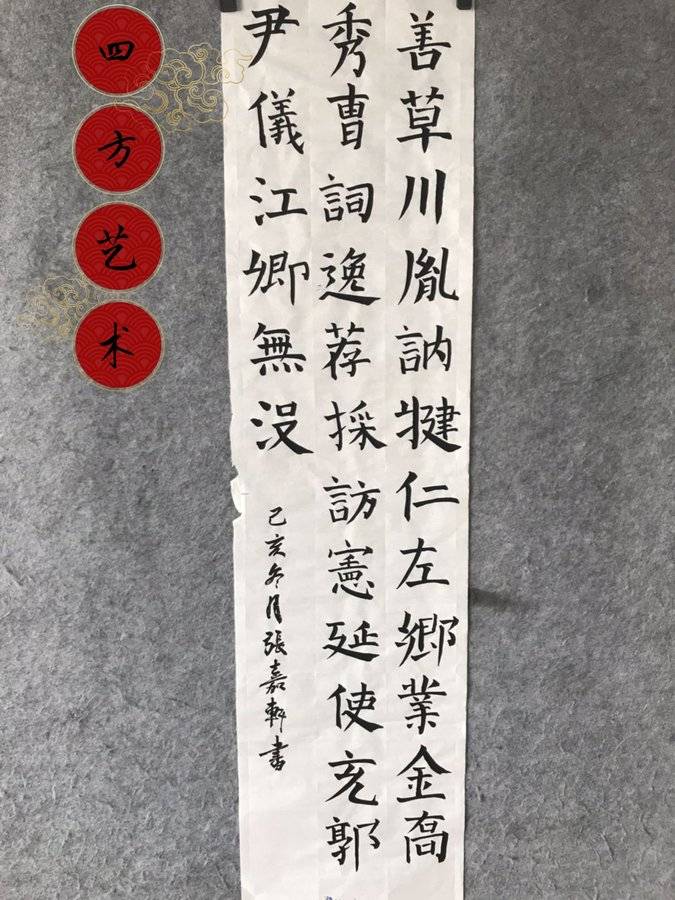 四方艺术
善草川胤訥犍仁左鄉業金高
秀曹詞逸荐採訪憲延使充郭
尹儀江卿無没
己亥冬月張嘉軒書